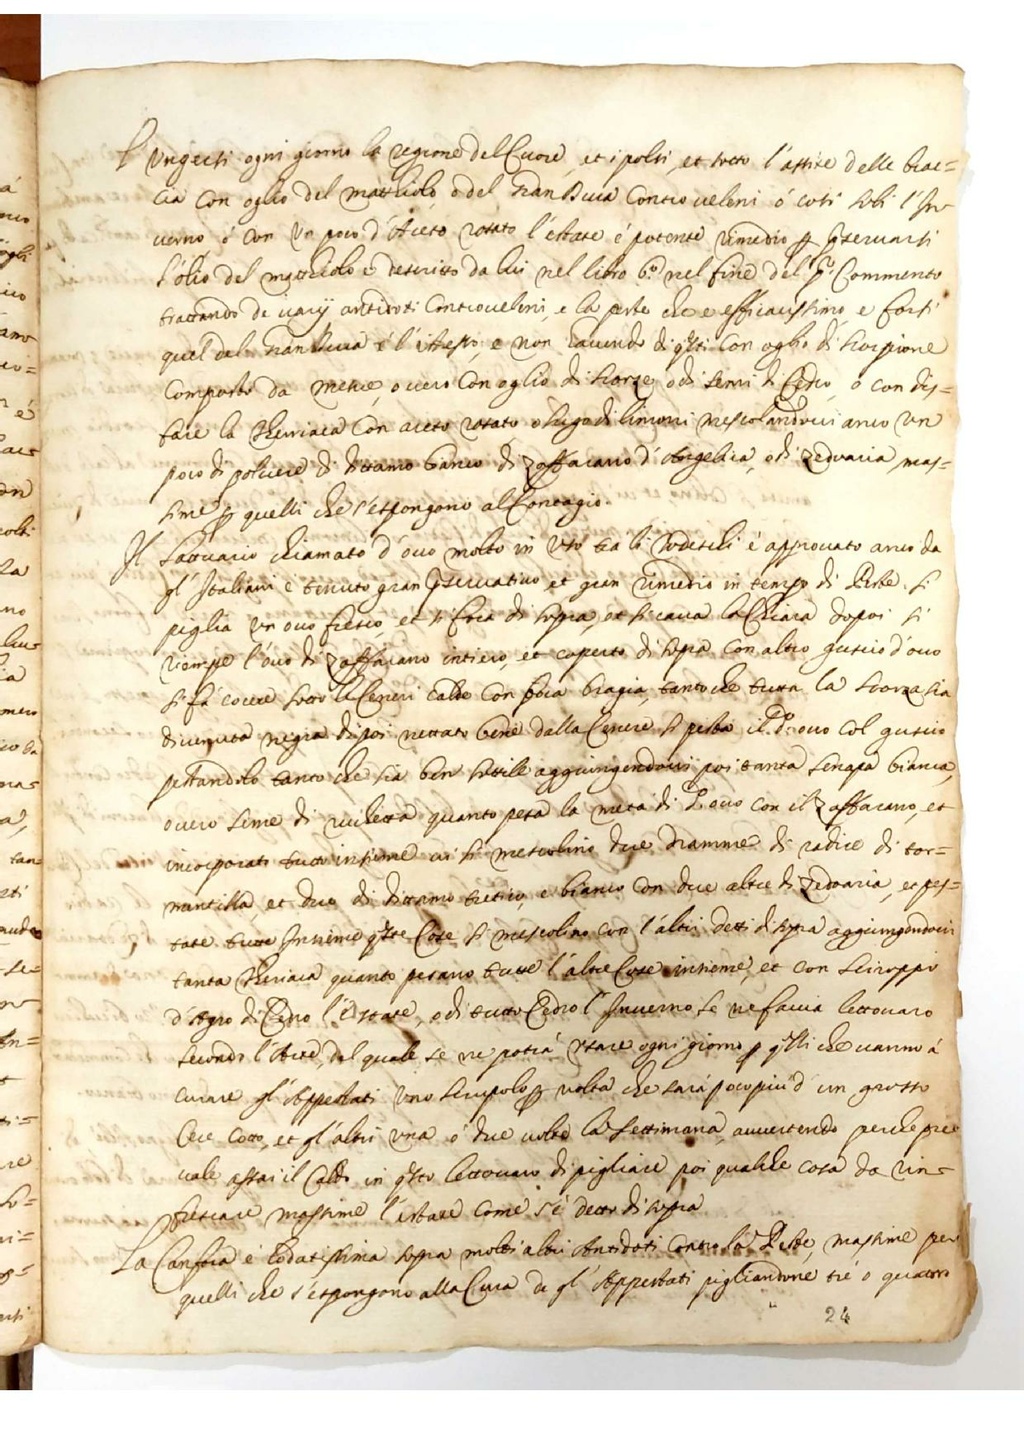 L'Ungersi ogni giorno la regione del Cuore, et i polsi, et sotto l'assire delle brac=
cia con oglio del mattiolo, o del gran Duca Controveleni ó cosi soli l'In-
verno ó con un poco d'Aceto rosato l'estate é potente rimedio p pservarsi
L'olio del mattiolo é descritto da lui nel libro 6.º nel fine del p.º Commento
trattando di varij antidoti Controveleni, e la peste che e efficacissimo, e forsi
quel del gran Duca é l'istesso, e non havendo di qsti con oglio di scorpione
composto da mesue, overo con oglio di scorze, o di semi di Cedro, o con dis=
fare la Theriaca con aceto rosato o sugo di limoni mescolandovi anco un
poco di polvere di dittamo bianco di Zaffarano d'Angelica, o di Zedoaria, mas=
sime p quelli che s'espongono al Contagio.
Il Lattuario chiamato d'ovo molto in uso tra li Todeschi é approvato anco da
gl'Italiani e tenuto gran pservativo et gran rimedio in tempo di Peste. si
piglia un ovo fresco, et si fora di sopra, et si cava la Chiara dopoi si
riempe l'ovo di Zaffarano intiero, et coperto di sopra con altro guscio d'ovo
si fá cocere sotto le Ceneri calde con poca bragia, tanto che tutta la scorza sia
divenuta negra dipoi nettato bene dalla Cenere si pesta il d. ovo col guscio
pestandolo tanto che sia ben sottile aggiungendovi poi tanta senapa bianca,
overo seme di ruchetta quanto pesa la metá di d. ovo con il Zaffarano, et
incorporati tutti insieme vi si mescolino due dramme di radice di tor=
mentilla, et due di dittamo cretico, e bianco con due altre di Zedoaria, et pes=
tate tutte Insieme qste Cose si mescolino con l'altri detti di sopra aggiungendovi
tanta Theriaca quanto pesano tutte l'altre Cose insieme, et con sciroppo
d'Agro di Cedro l'Estate, o di tutto Cedro l'Inverno se ne faccia lettovaro
secondo l'Arte, del quale se ne potrá usare ogni giorno p qlli che vanno á
curare gl'Appestati uno scrupolo p volta che sará poco piu d'un grosso
Cece Cotto, et gl'altri una ó due volte la Settimana, avvertendo perche pre=
vale assai il Caldo in qsto lettovaro di pigliare poi qualche cosa da rin=
frescare massime l'estate come s'é detto di sopra
La Canfora é lodatissima sopra molti altri Antidoti Contro la Peste, massime per
quelli che s'espongono alla Cura de gl'Appestati pigliandone tré o quattro
24